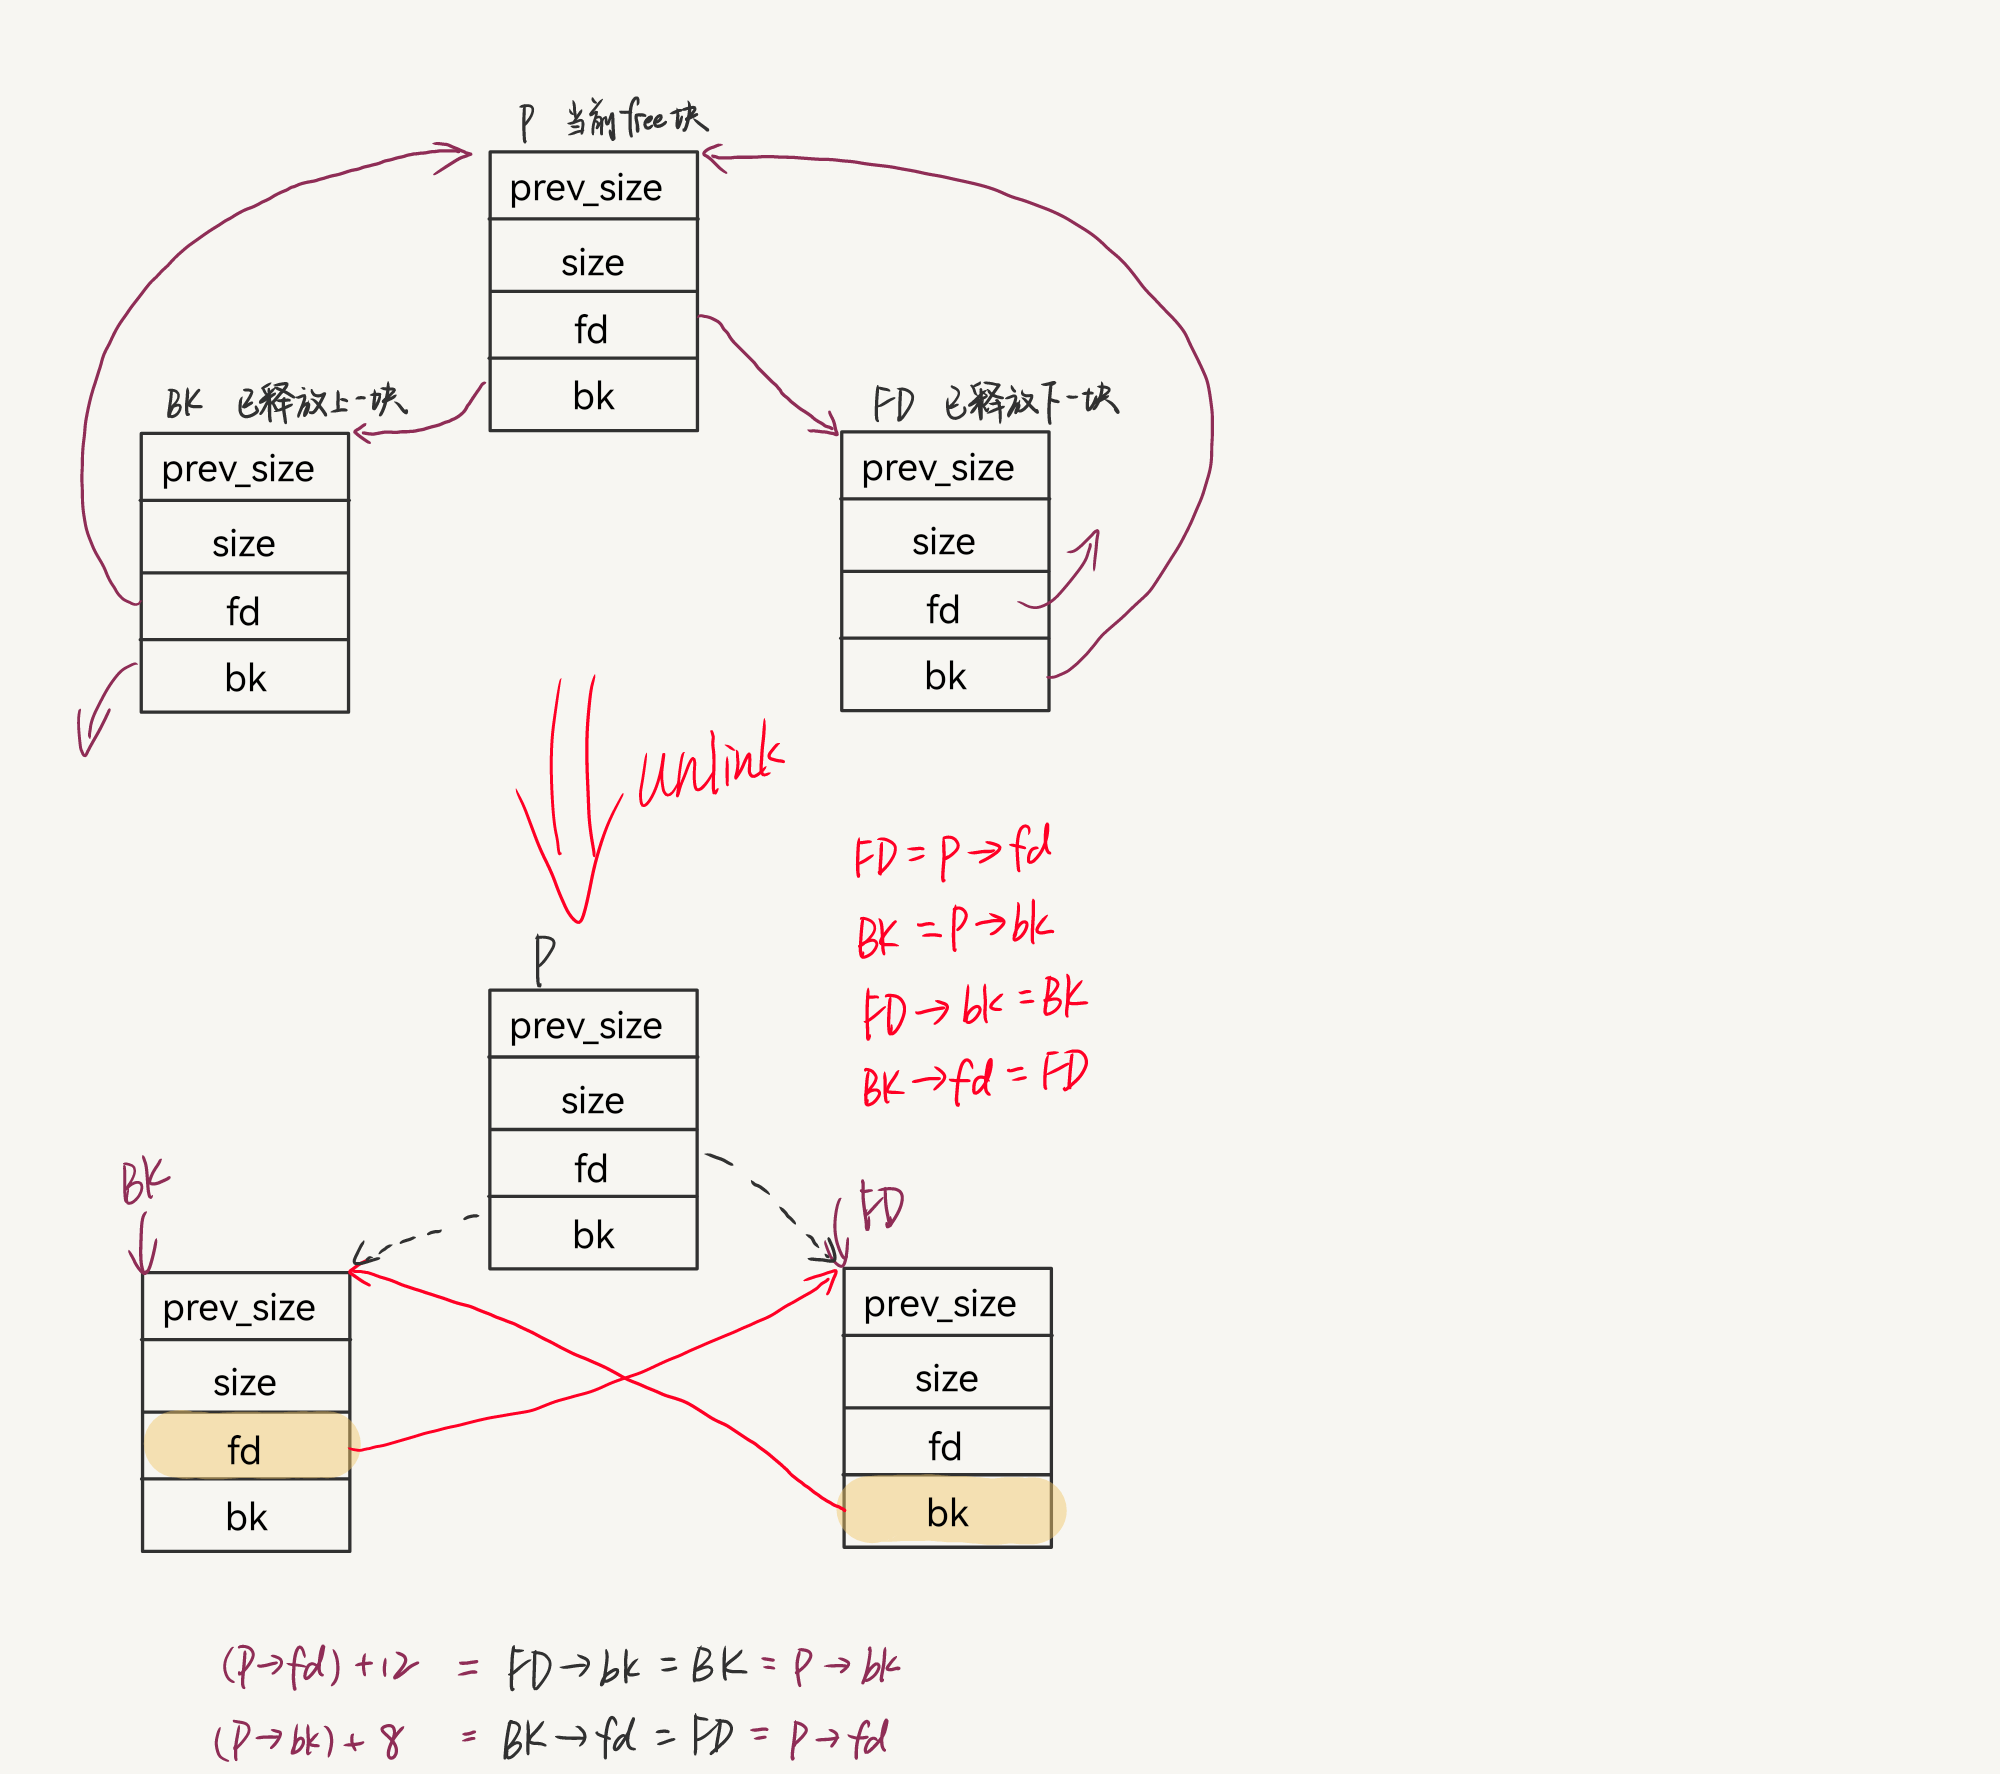 P 当前free块
prev_size
size
fd
bk
BK 已释放上一块
prev_size
size
fd
bk
FD 已释放下一块
prev_size
size
fd
bk
unlink
FD = P → fd
BK = P → bk
FD → bk = BK
BK → fd = FD
P
prev_size
size
fd
bk
BK
prev_size
size
fd
bk
FD
prev_size
size
fd
bk
(P→fd) + 12 = FD → bk = BK = P → bk
(P→bk) + 8 = BK → fd = FD = P → fd